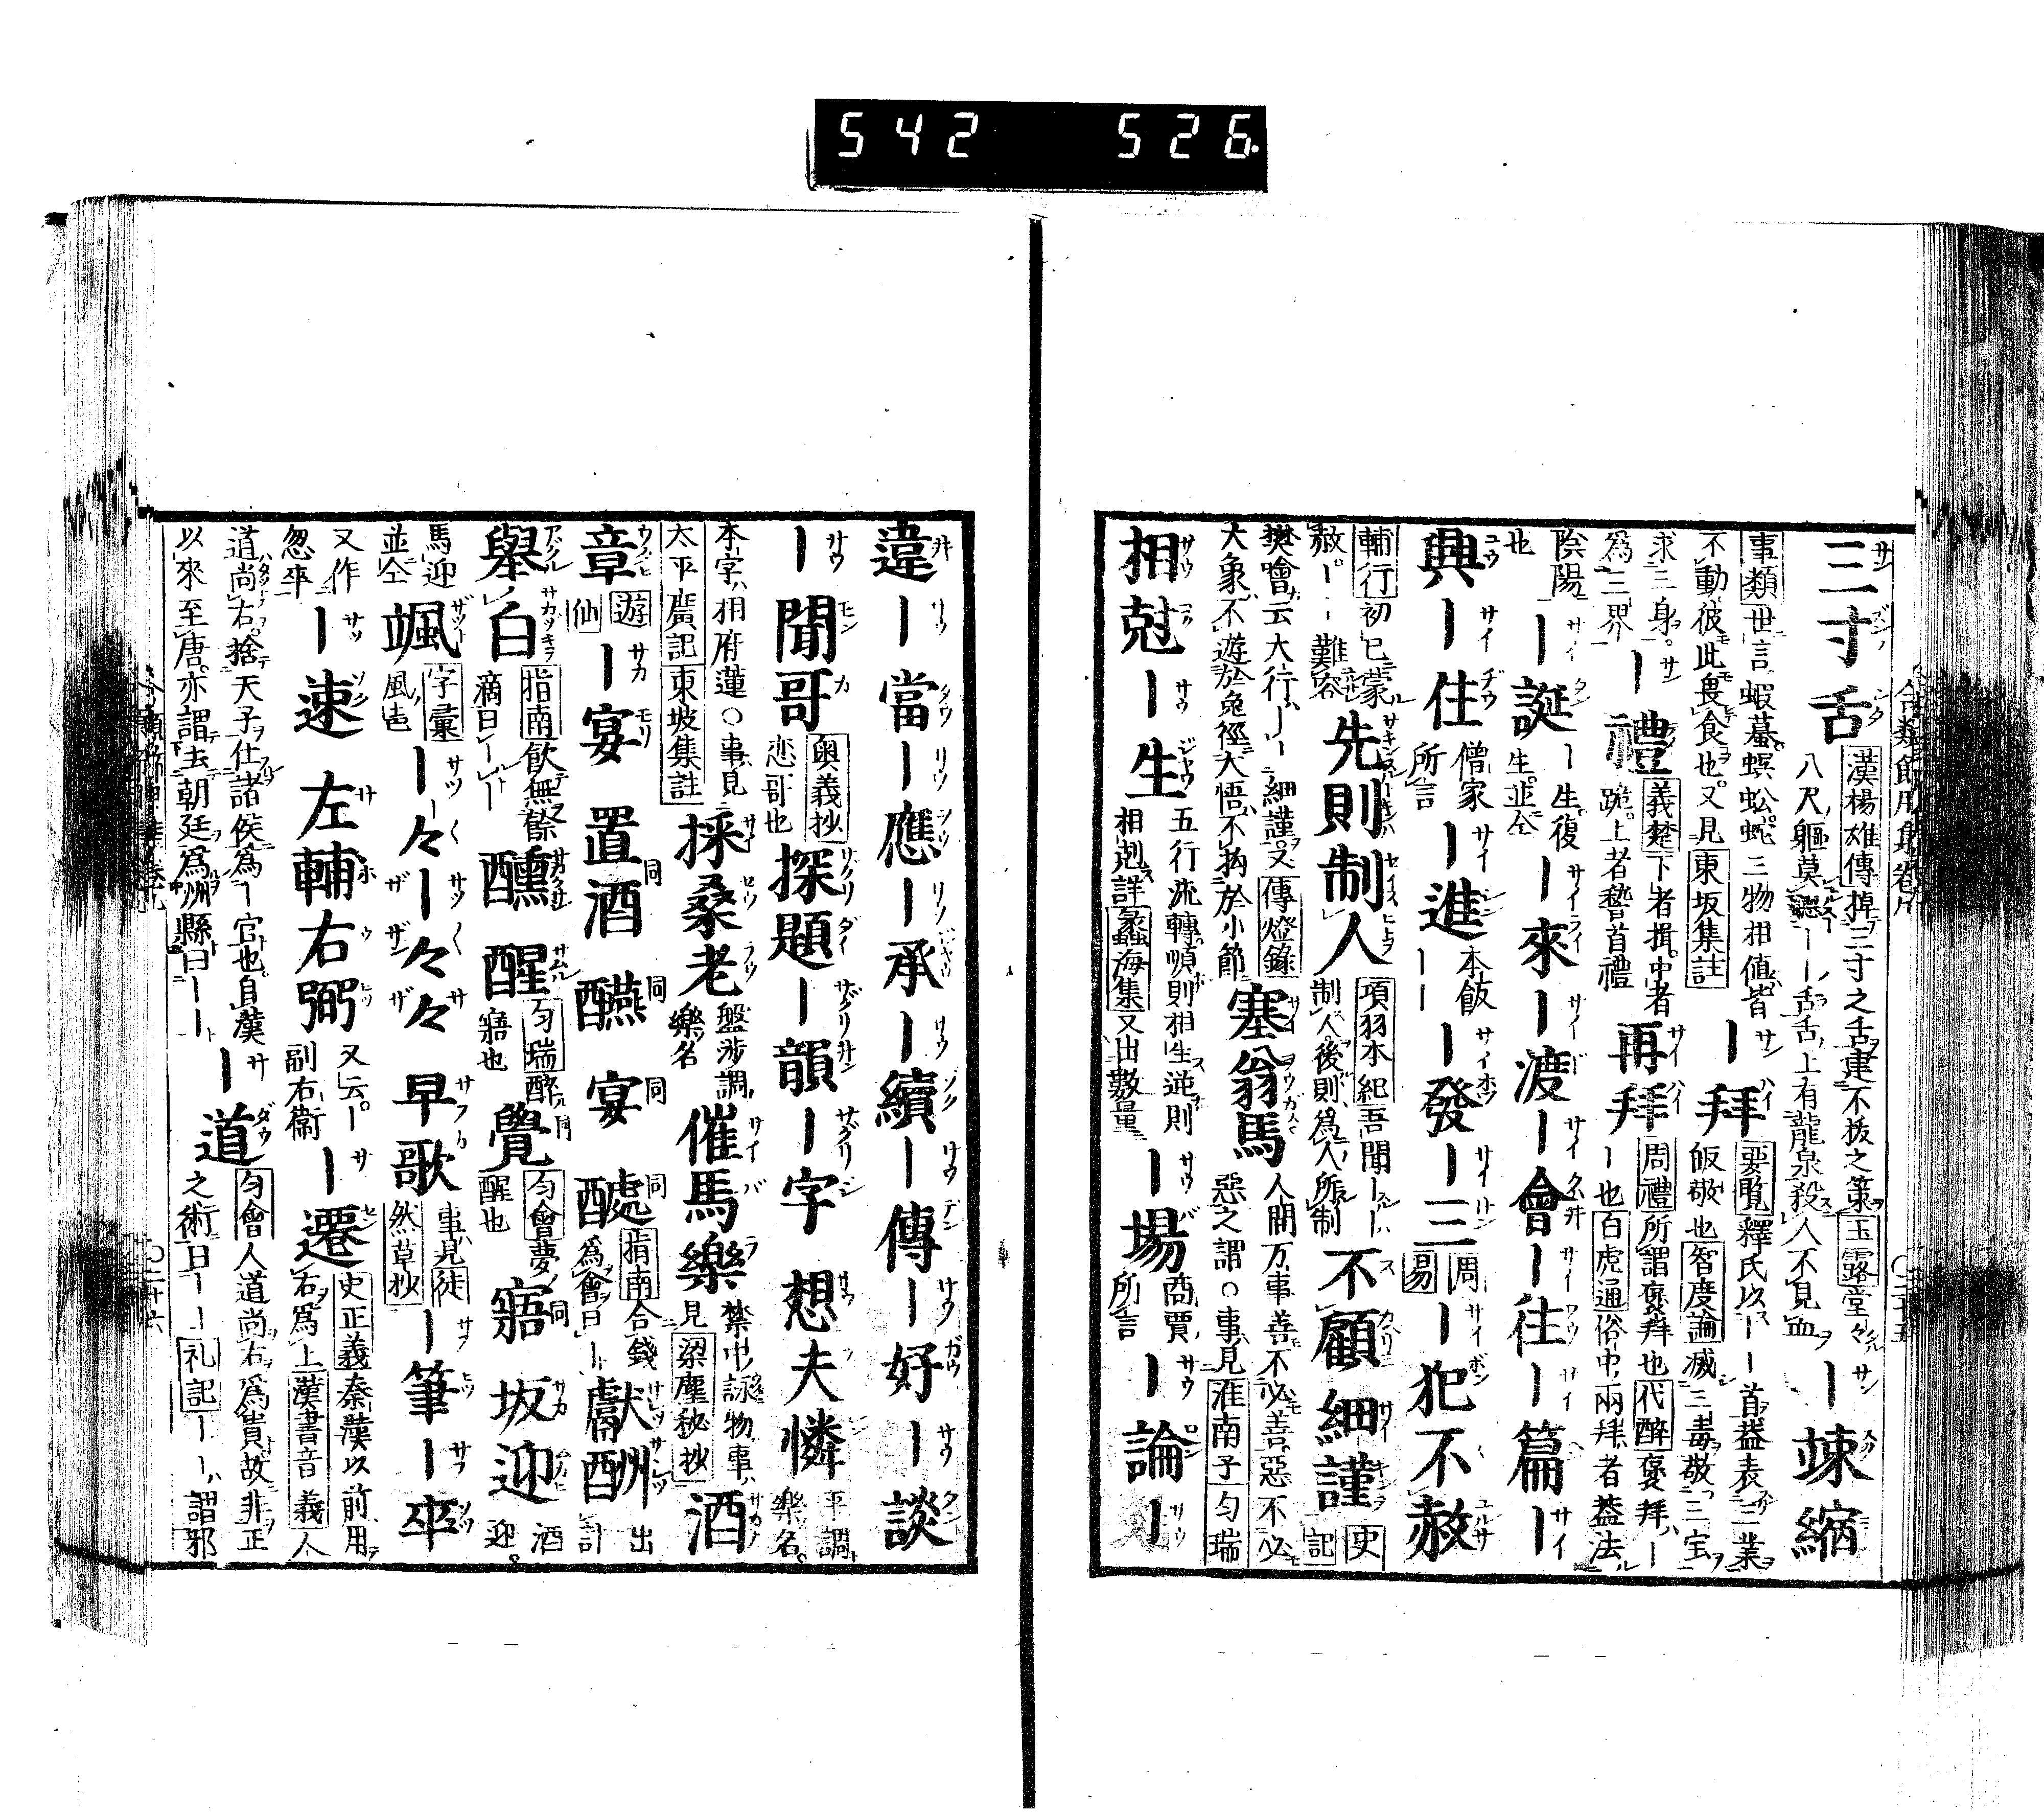 542 526
三寸舌 漢楊雄傳掉三寸之舌建不拔之策玉露堂々
八尺軀莫聽ーー舌舌上有龍泉殺人不見血 ー竦縮
事類世言蝦蟇蜈蚣蛇三物相值皆
不動彼此畏食也又見東坂集註 ー拜 要覧釋氏以ーー首葢表三業
皈敬也智度論滅三毒敬三宝
求三身
為三界 ー禮 義楚下者揖中者
跪上者稽首禮 再拜 周禮所謂褒拜也代醉褒拜ー
ー也百虎通俗中兩拜者葢法
陰陽
也 ー誕 ー生復
生並仝 ー來ー渡ー會ー往ー篇ー
興ー住 僧家
所言 ー進 本飯
ーー ー發ー三 周
易 ー犯不赦
輔行初已蒙
赦ーー難容 先則制人 項羽本紀吾聞ーーハ
制人後則為人所制 不顧細謹 史
記
樊噲云大行ーー細謹又傳燈録
大象不遊於兔徑大悟不拘於小節 塞翁馬 人間万事善不必善惡不必
惡之謂○事見淮南子匀瑞
相尅ー生 五行流轉順則相生逆則
相剋詳蠡海集又出數量 ー場 商賈
所言 ー論ー
違ー當ー應ー承ー續ー傳ー好ー談
ー聞哥 奥義抄
恋哥也 探題ー韻ー字 想夫憐 平調
樂名
本字ハ相府蓮○事見
太平廣記東坡集註 採桑老 盤渉調
樂名 催馬樂 禁中詠物事
見梁塵秘抄 酒
章 遊
仙 ー宴 置酒 醼 宴 醵 指南合錢
為會曰ー 獻酬 出
計
舉白 指南飲無餘
滴曰ーー 醺 醒 匀瑞醉
寤也 覺 匀會夢
醒也 寤 坂迎 酒
迎
馬迎
並仝 颯 字彙
風声 ー々ー々々 早歌 事見徒
然草抄 ー筆ー卒
又作
忽卒 ー速 左輔右弼 又云ー
副右衛 ー遷 史正義秦漢以前用
右為上漢書音義人
道尚右捨天子仕諸侯為ー官也自漢
以來至唐亦謂去朝廷為州縣曰ーー ー道 匀會人道尚右為貴故非正
之術曰ーー礼記ーーハ謂邪